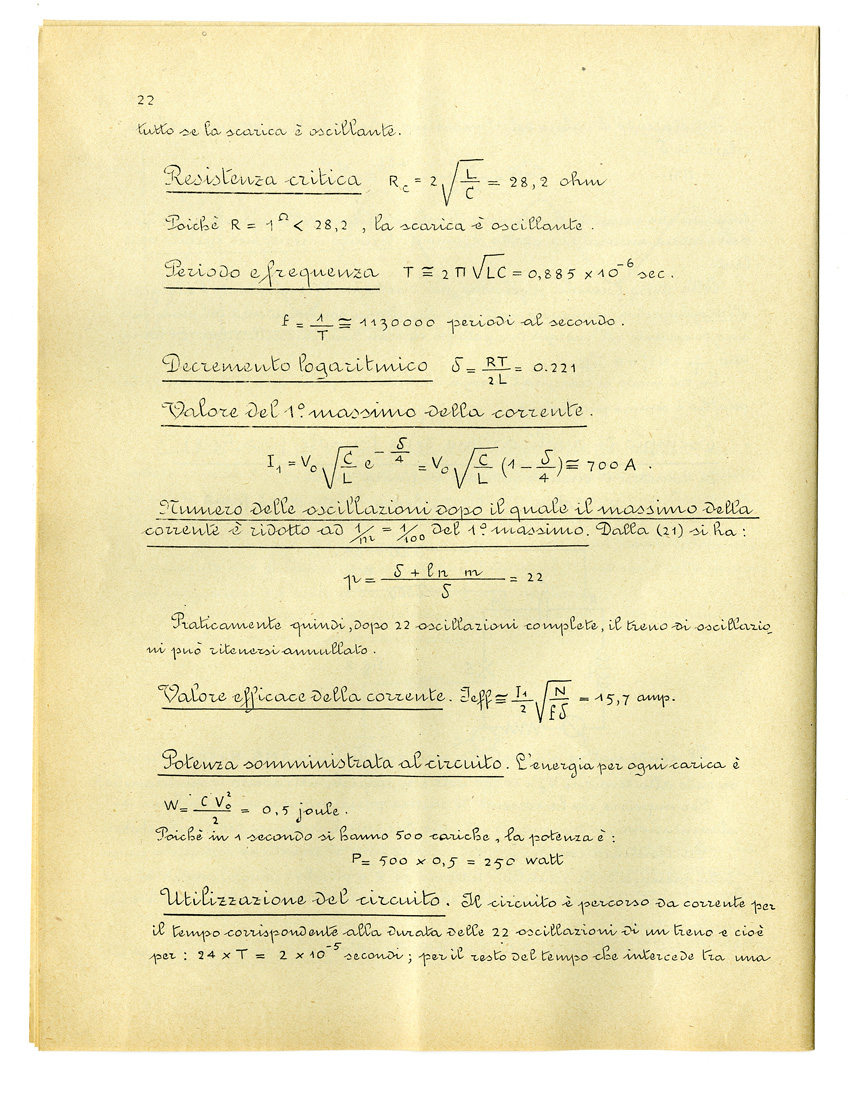 22
tutto se la scarica è oscillante.
Resistenza critica R_c = 2 √(L/C) = 28,2 ohm
Poichè R = 1^Ω < 28,2 , la scarica è oscillante .
Periodo e frequenza T ≅ 2 π √LC = 0,885 × 10^-6 sec .
f = 1/T ≅ 1130000 periodi al secondo .
Decremento logaritmico δ = RT/2L = 0.221
Valore del 1° massimo della corrente .
I_1 = V_o √(C/L) e^(-δ/4) = V_o √(C/L) (1 - δ/4) ≅ 700 A .
Numero delle oscillazioni dopo il quale il massimo della
corrente è ridotto ad 1/m = 1/100 del 1° massimo. Dalla (21) si ha :
p = (δ + ln m)/δ = 22
Praticamente quindi, dopo 22 oscillazioni complete, il treno di oscillazio_
ni può ritenersi annullato .
Valore efficace della corrente . Ieff ≅ I_1/2 √(N/fδ) = 15,7 amp.
Potenza somministrata al circuito . L'energia per ogni carica è
W = C V_o^2/2 = 0,5 joule .
Poichè in 1 secondo si hanno 500 cariche , la potenza è :
P = 500 × 0,5 = 250 watt
Utilizzazione del circuito . Il circuito è percorso da corrente per
il tempo corrispondente alla durata delle 22 oscillazioni di un treno e cioè
per : 24 × T = 2 × 10^-5 secondi ; per il resto del tempo che intercede tra una